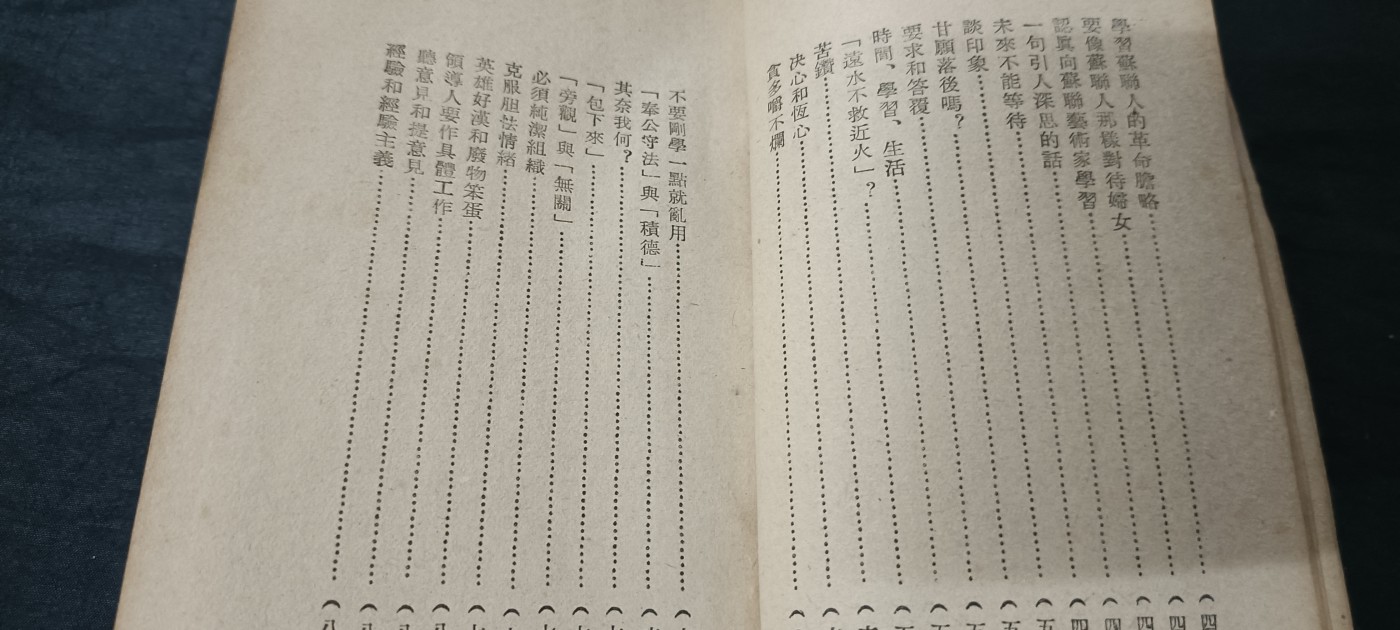 學習蘇聯人的革命膽略……（四
要像蘇聯人那樣對待婦女……（四
認眞向蘇聯藝術家學習……（四
一句引人深思的話……（四
未來不能等待……（四
談印象……（五
甘願落後嗎？……（五
要求和答覆……（五
時間、學習、生活……（五
「遠水不救近火」？……（
苦鑽……（
決心和恆心……（
貪多嚼不爛……（
不要剛學一點就亂用……（
「奉公守法」與「積德」……（
其奈我何？……（
「包下來」……（
「旁觀」與「無關」……（
必須純潔組織……（
克服胆怯情緒……（
英雄好漢和廢物笨蛋……（
領導人要作具體工作……（八
聽意見和提意見……（八
經驗和經驗主義……（八